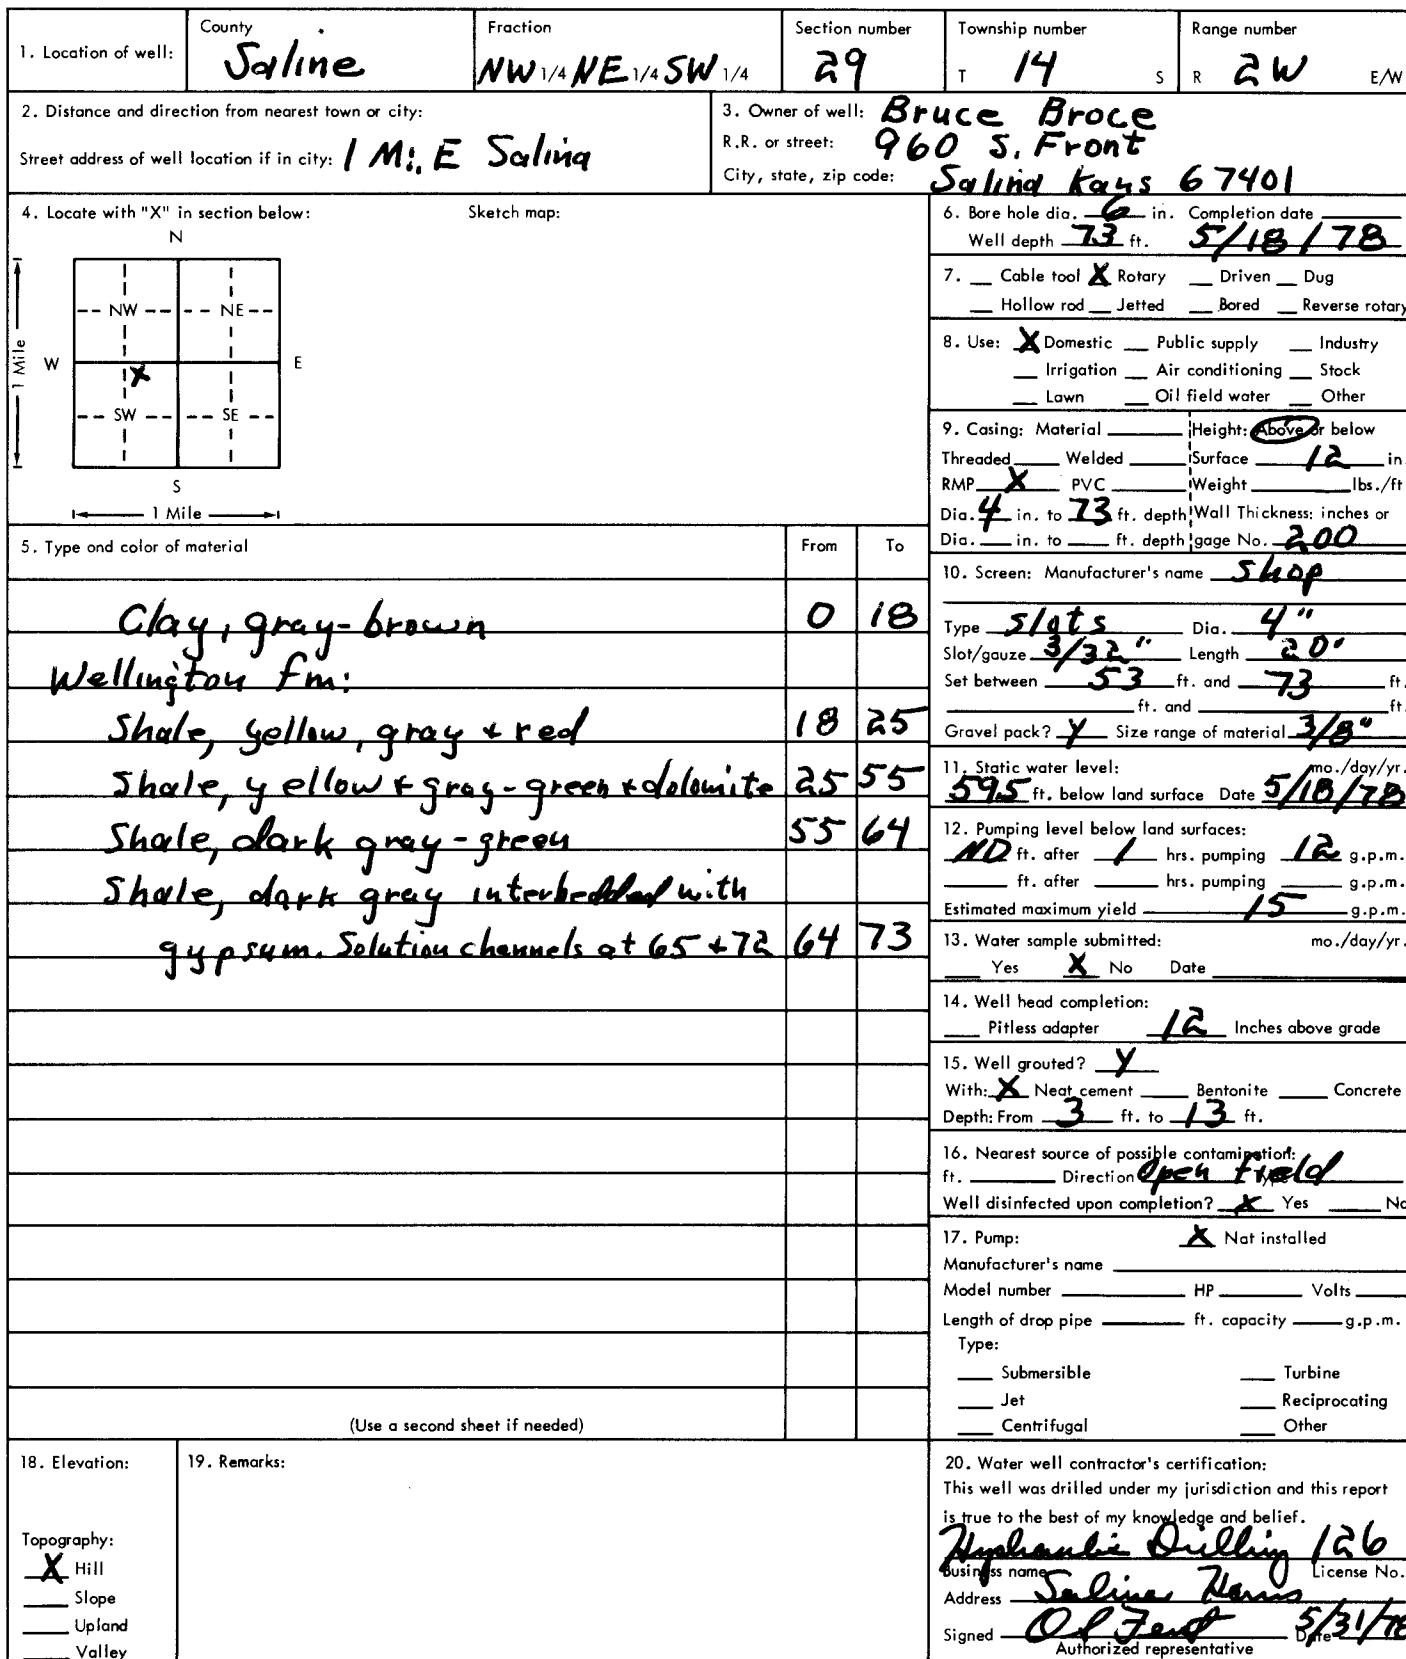 1. Location of well: County Saline Fraction NW 1/4 NE 1/4 SW 1/4 Section number 29 Township number T 14 S Range number R 2W E/W
2. Distance and direction from nearest town or city:
Street address of well location if in city: 1 Mi. E Salina
3. Owner of well: Bruce Broce
R.R. or street: 960 S. Front
City, state, zip code: Salina Kans 67401
4. Locate with "X" in section below: Sketch map:
N
NW NE
W X E
SW SE
S
1 Mile
1 Mile
5. Type and color of material From To
Clay, gray-brown 0 18
Wellington fm:
Shale, yellow, gray + red 18 25
Shale, yellow + gray-green + dolomite 25 55
Shale, dark gray-green 55 64
Shale, dark gray interbedded with
gypsum. Solution channels at 65 + 72 64 73
(Use a second sheet if needed)
6. Bore hole dia. 6 in. Completion date
Well depth 73 ft. 5/18/78
7. Cable tool X Rotary Driven Dug
Hollow rod Jetted Bored Reverse rotary
8. Use: X Domestic Public supply Industry
Irrigation Air conditioning Stock
Lawn Oil field water Other
9. Casing: Material Height: Above or below
Threaded Welded Surface 12 in.
RMP X PVC Weight lbs./ft
Dia. 4 in. to 73 ft. depth Wall Thickness: inches or
Dia. in. to ft. depth gage No. 200
10. Screen: Manufacturer's name Shop
Type Slots Dia. 4"
Slot/gauze 3/32" Length 20'
Set between 53 ft. and 73 ft.
ft. and ft.
Gravel pack? Y Size range of material 3/8"
11. Static water level: mo./day/yr.
59.5 ft. below land surface Date 5/18/78
12. Pumping level below land surfaces:
ND ft. after 1 hrs. pumping 12 g.p.m.
ft. after hrs. pumping g.p.m.
Estimated maximum yield 15 g.p.m.
13. Water sample submitted: mo./day/yr.
Yes X No Date
14. Well head completion:
Pitless adapter 12 Inches above grade
15. Well grouted? Y
With: X Neat cement Bentonite Concrete
Depth: From 3 ft. to 13 ft.
16. Nearest source of possible contamination:
ft. Direction Open Field
Well disinfected upon completion? X Yes No
17. Pump: X Not installed
Manufacturer's name
Model number HP Volts
Length of drop pipe ft. capacity g.p.m.
Type:
Submersible Turbine
Jet Reciprocating
Centrifugal Other
18. Elevation:
Topography:
X Hill
Slope
Upland
Valley
19. Remarks:
20. Water well contractor's certification:
This well was drilled under my jurisdiction and this report
is true to the best of my knowledge and belief.
Hydraulic Drilling 126
Business name License No.
Address Salina Kans
Signed 5/31/78 Date
Authorized representative